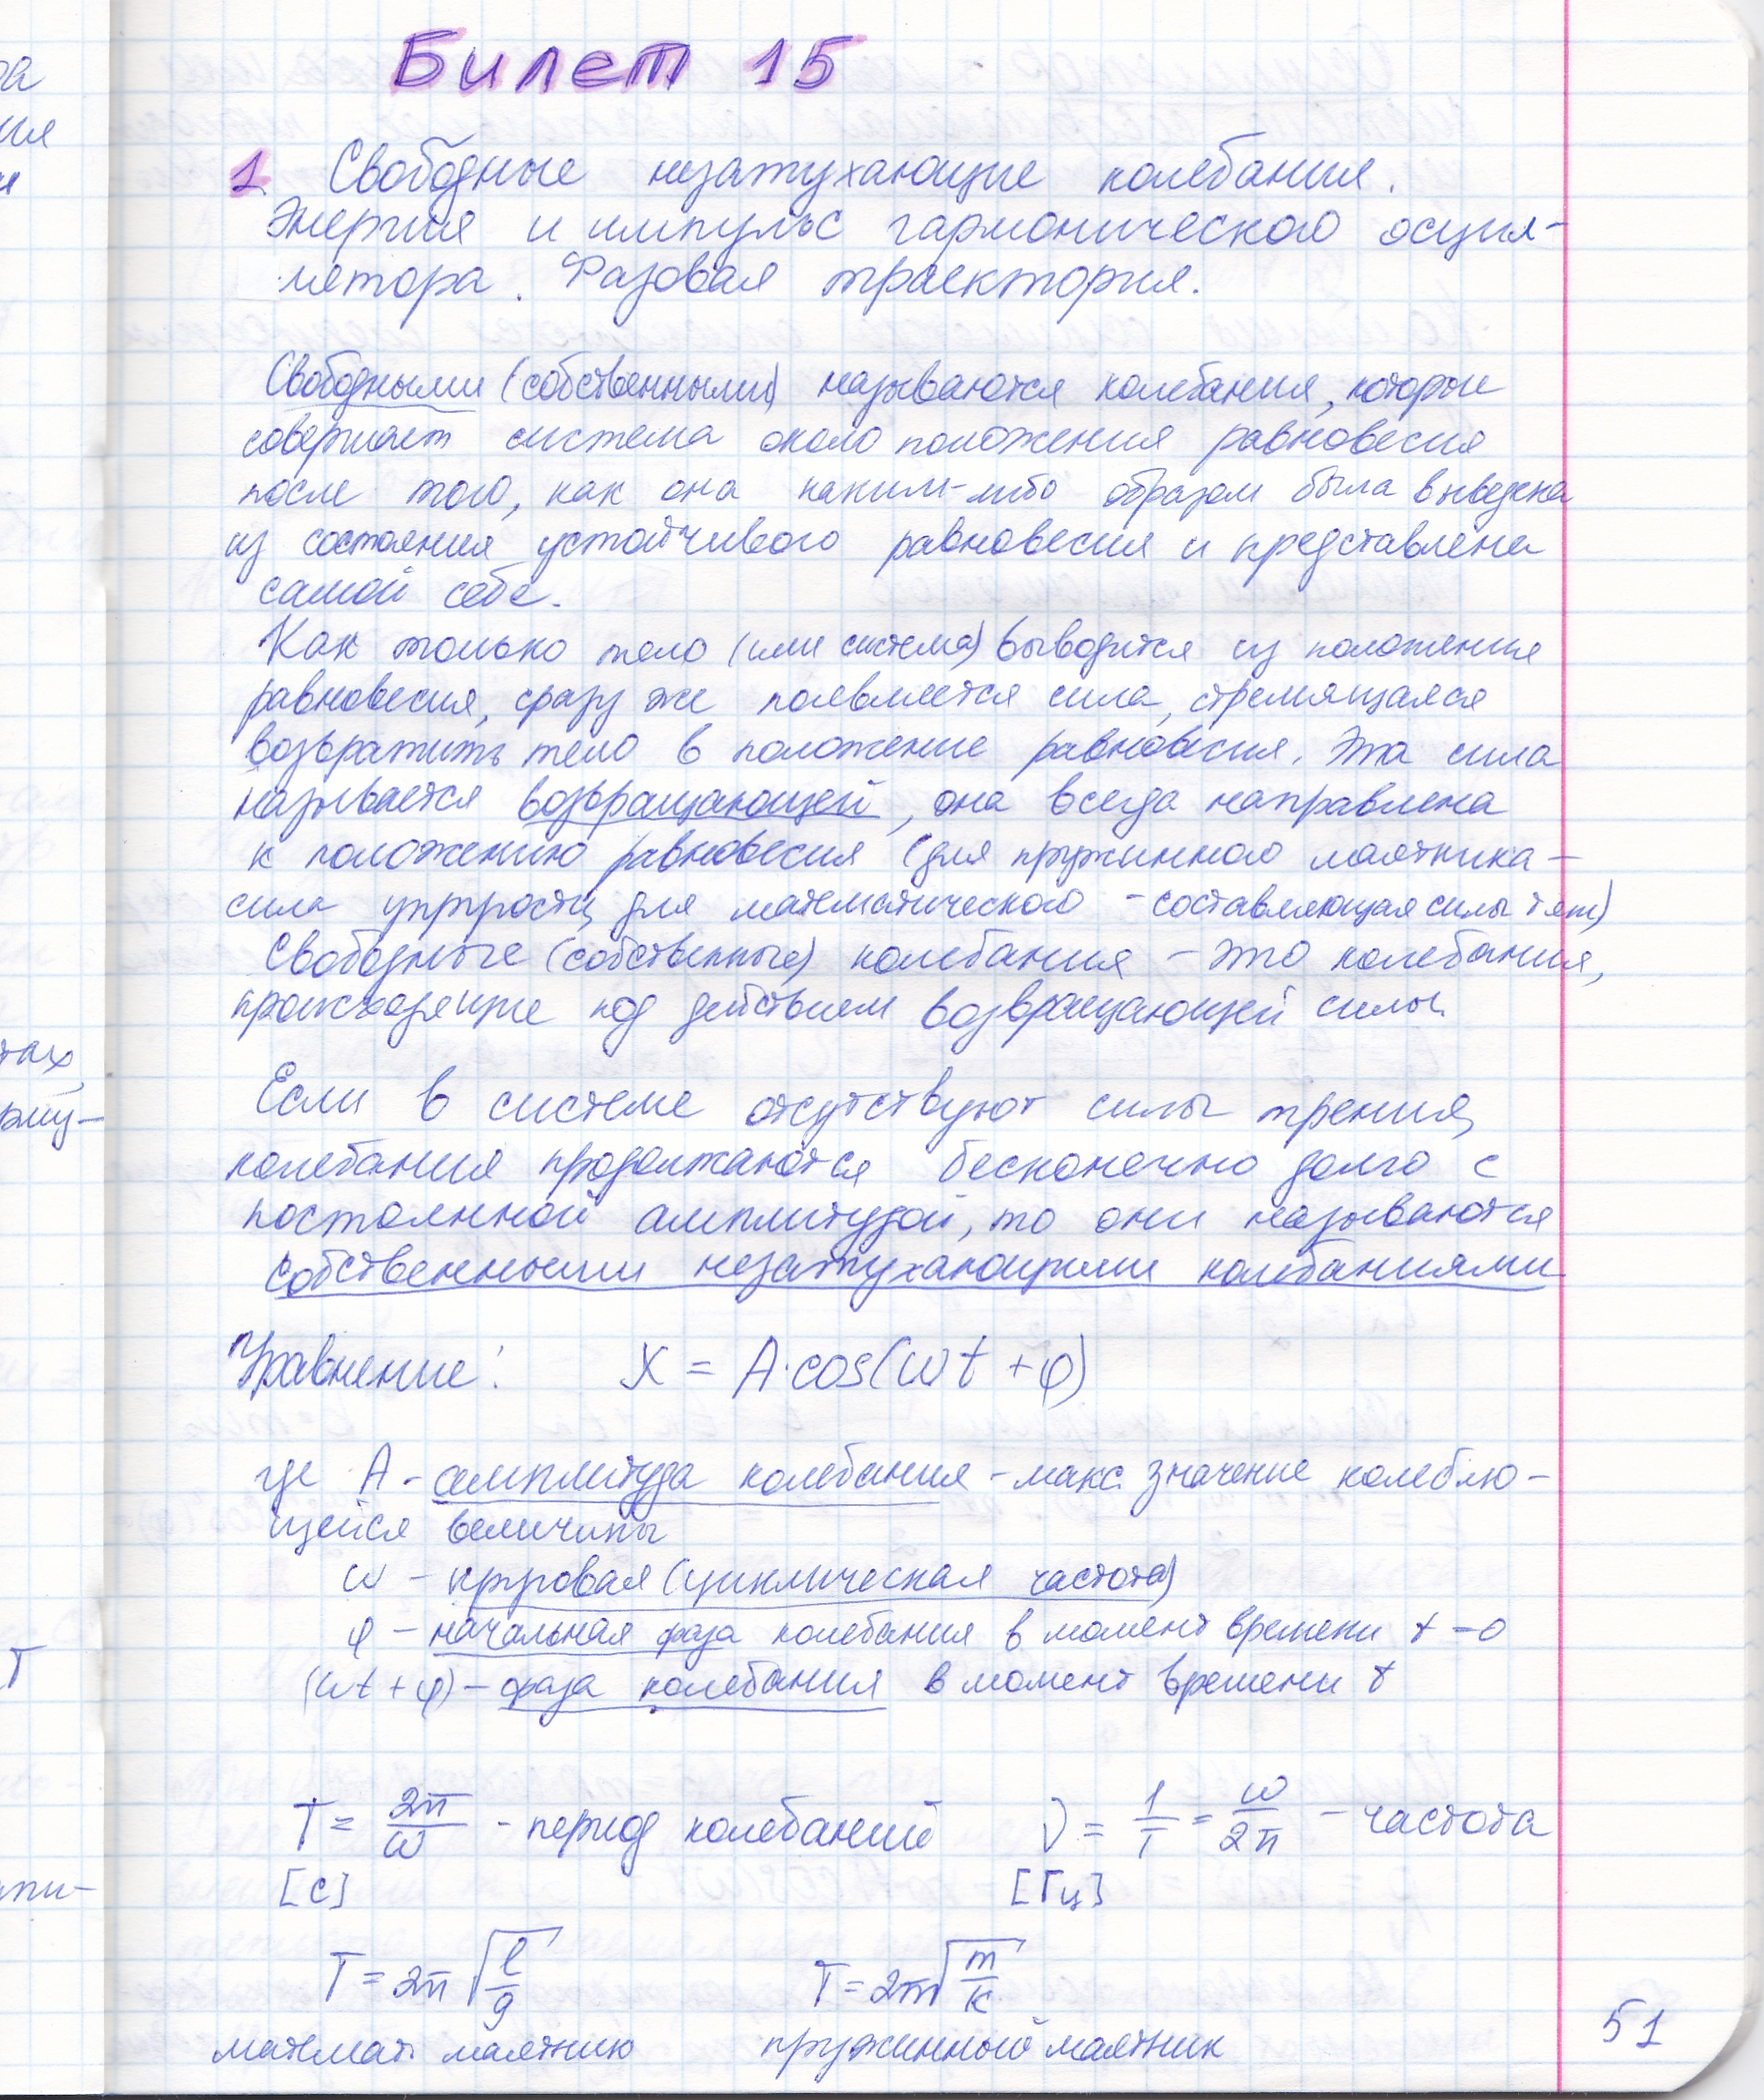 Билет 15
1. Свободные незатухающие колебания.
Энергия и импульс гармонического осцил-
лятора. Фазовая траектория.
Свободными (собственными) называются колебания, которые
совершает система около положения равновесия
после того, как она каким-либо образом была выведена
из состояния устойчивого равновесия и представлена
самой себе.
Как только тело (или система) выводится из положения
равновесия, сразу же появляется сила, стремящаяся
возвратить тело в положение равновесия. Эта сила
называется возвращающей, она всегда направлена
к положению равновесия (для пружинного маятника -
сила упругости, для математического - составляющая силы тяж)
Свободные (собственные) колебания - это колебания,
происходящие под действием возвращающей силы.
Если в системе отсутствуют силы трения,
колебания продолжаются бесконечно долго с
постоянной амплитудой, то они называются
собственными незатухающими колебаниями
Уравнение: X = A·cos(ωt + φ)
где A - амплитуда колебания - макс. значение колеблю-
щейся величины
ω - круговая (циклическая частота)
φ - начальная фаза колебания в момент времени t = 0
(ωt + φ) - фаза колебания в момент времени t
T = 2π/ω - период колебаний ν = 1/T = ω/2π - частота
[с] [Гц]
T = 2π√(l/g) T = 2π√(m/k)
математ. маятник пружинный маятник
51
ра
ия
и
тах,
рму-
T
пи-